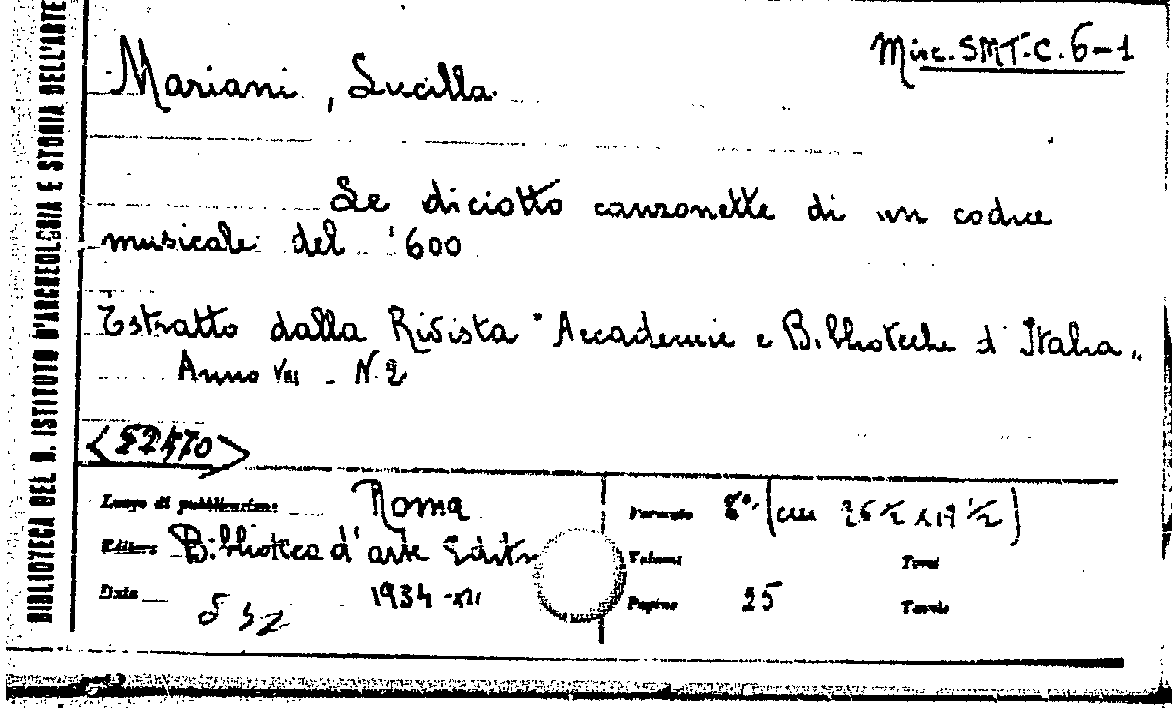 Misc. SMT. C. 6-1
Mariani, Lucilla
Le diciotto canzonette di un codice
musicale del '600
Estratto dalla Rivista "Accademie e Biblioteche d'Italia"
Anno VIII - N. 2
Luogo di pubblicazione Roma
Editore Biblioteca d'arte Editr
Data 1934-XII
Formato 8° (cm 26 ½ x 19 ½)
Volumi Tomi
Pagine 25 Tavole
BIBLIOTECA DEL R. ISTITUTO D'ARCHEOLOGIA E STORIA DELL'ARTE